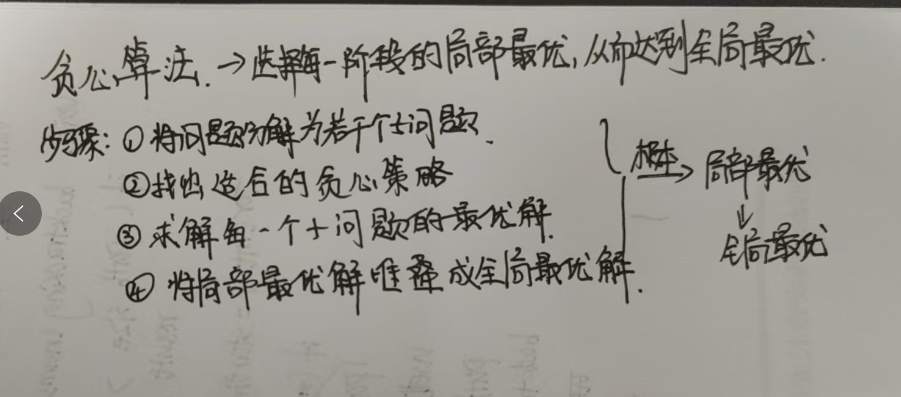 贪心算法.→选择每一阶段的局部最优,从而达到全局最优.
步骤:①将问题分解为若干个子问题.
②找出适合的贪心策略
③求解每一个子问题的最优解.
④将局部最优解堆叠成全局最优解.
根本→局部最优
↓
全局最优